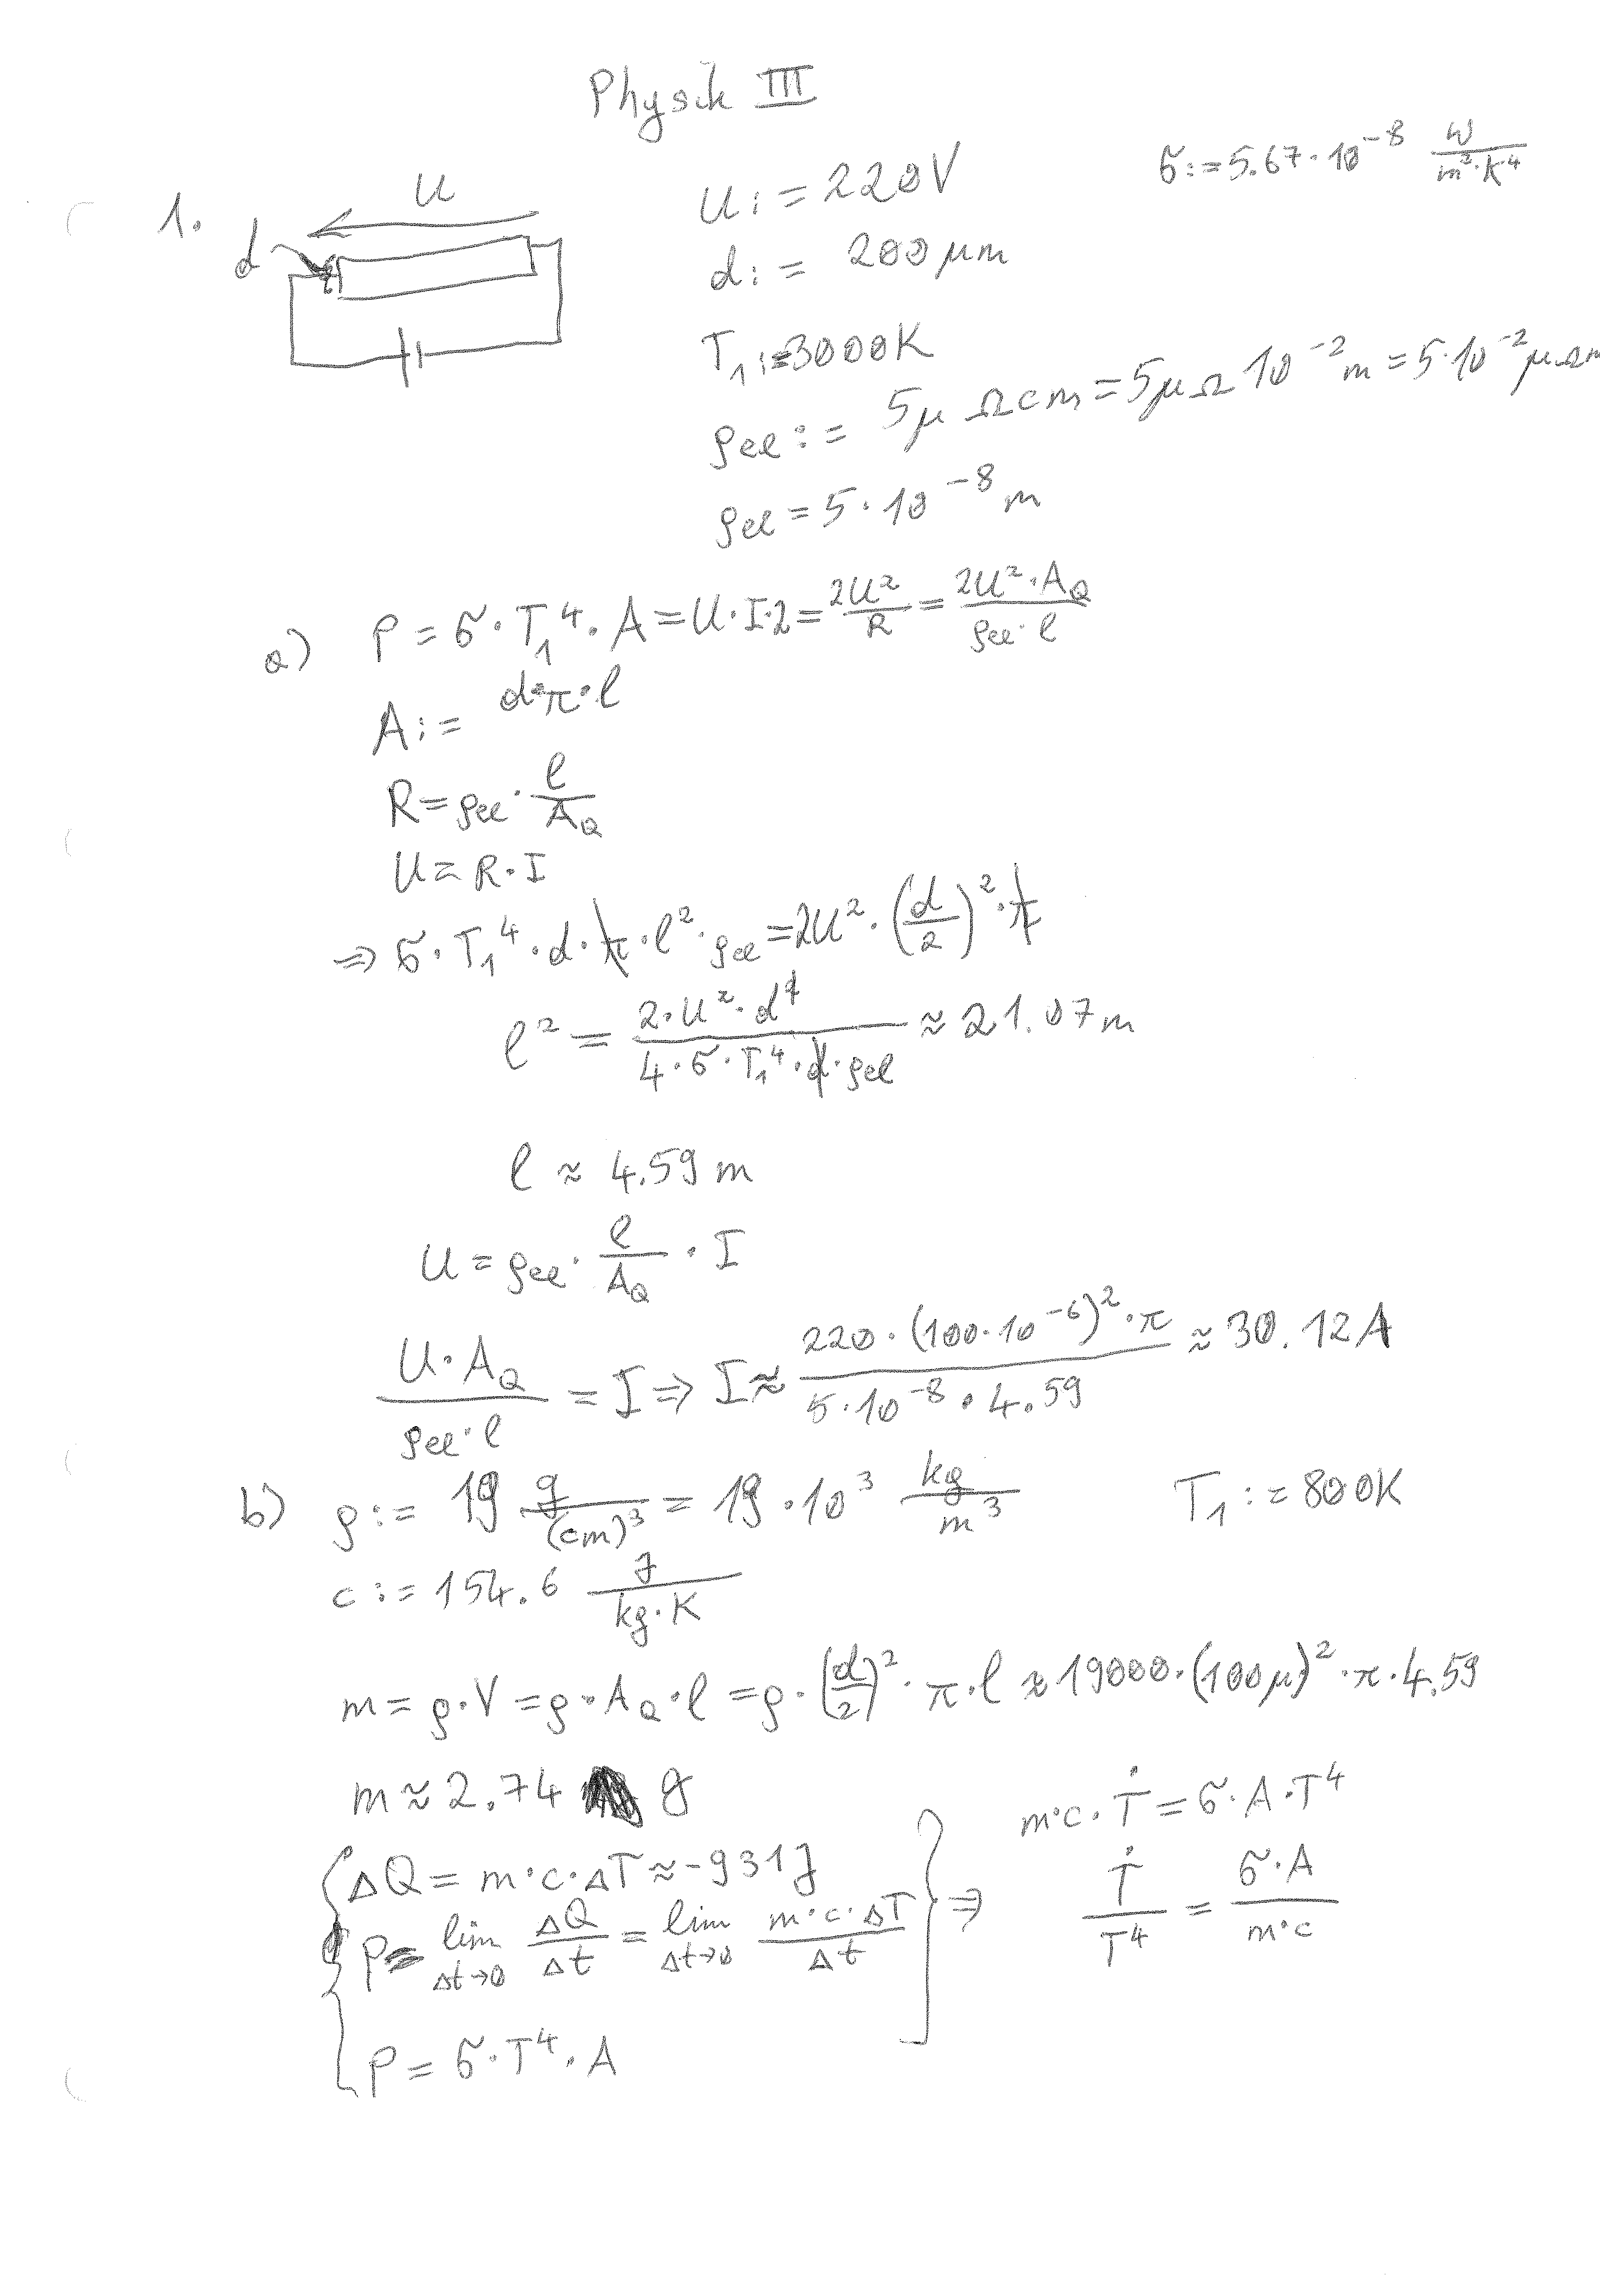 Physik III
1.
d
U
U := 220V
σ := 5.67·10⁻⁸ W/(m²·K⁴)
d := 200 μm
T₁ := 3000K
ρel := 5μ Ωcm = 5μΩ 10⁻² m = 5·10⁻² μΩm
ρel = 5·10⁻⁸ m
a) P = σ·T₁⁴·A = U·I·2 = 2U²/R = 2U²·A_Q/(ρel·l)
A := d·π·l
R = ρel · l/A_Q
U = R·I
⇒ σ·T₁⁴·d·π·l²·ρel = 2U²·(d/2)²·π
l² = 2·U²·d²/(4·σ·T₁⁴·d·ρel) ≈ 21.07m
l ≈ 4.59 m
U = ρel · l/A_Q · I
U·A_Q/(ρel·l) = I ⇒ I ≈ 220·(100·10⁻⁶)²·π/(5·10⁻⁸·4.59) ≈ 30.12A
b) ρ := 19 g/(cm)³ = 19·10³ kg/m³ T₁ := 800K
c := 154.6 J/(kg·K)
m = ρ·V = ρ·A_Q·l = ρ·(d/2)²·π·l ≈ 19000·(100μ)²·π·4.59
m ≈ 2.74 g
ΔQ = m·c·ΔT ≈ -931J
P = lim Δt→0 ΔQ/Δt = lim Δt→0 m·c·ΔT/Δt
P = σ·T⁴·A
⇒
m·c·Ṫ = σ·A·T⁴
Ṫ/T⁴ = σ·A/(m·c)